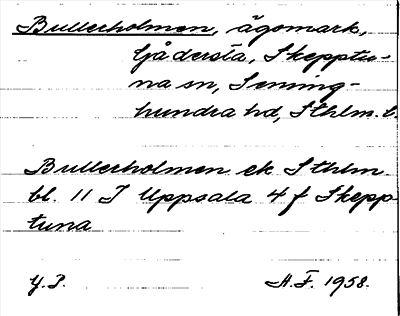 Bullerholmen, ägomark,
Gådersta, Skepptu-
na sn, Seming-
hundra hd, Sthlm. l.
Bullerholmen ek Sthlm
bl. 11 I Uppsala 4 f Skepp
tuna
Y.P. A.F. 1958.